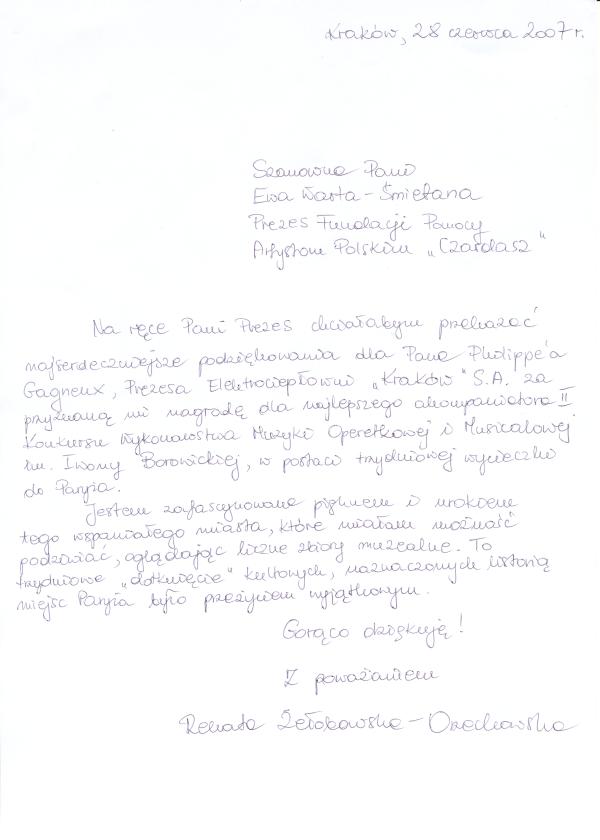 Kraków, 28 czerwca 2007 r.
Szanowna Pani
Ewa Warta-Śmietana
Prezes Fundacji Pomocy
Artystom Polskim „Czardasz"
Na ręce Pani Prezes chciałabym przekazać
najserdeczniejsze podziękowania dla Pana Philippe'a
Gagneux, Prezesa Elektrociepłowni „Kraków" S.A. za
przyznaną mi nagrodę dla najlepszego akompaniatora II
Konkursu Wykonawstwa Muzyki Operetkowej i Musicalowej
im. Iwony Borowickiej, w postaci trzydniowej wycieczki
do Paryża.
Jestem zafascynowana pięknem i urokiem
tego wspaniałego miasta, które miałam możność
podziwiać, oglądając liczne zbiory muzealne. To
trzydniowe „dotknięcie" kultowych, naznaczonych historią
miejsc Paryża było przeżyciem wyjątkowym.
Gorąco dziękuję!
Z poważaniem
Renata Żełobowska-Orzechowska